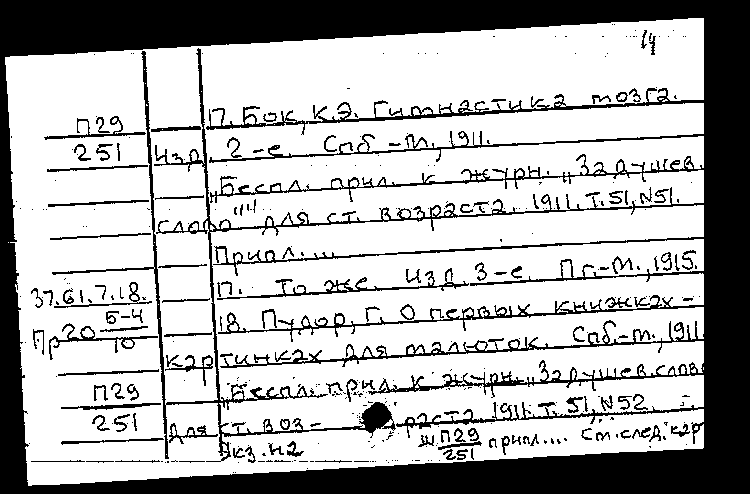 14
П29
251
П. Бок, К.Э. Гимнастика мозга.
Изд. 2-е. Спб-М., 1911.
„Беспл. прил. к журн. „Задушев.
слово"" для ст. возраста. 1911. Т. 51, N51.
Припл....
П. То же. Изд. 3-е. Пг.-М., 1915.
37.61.7.18.
Пр20 Б-4/10
18. Пудор, Г. О первых книжках-
картинках для малюток. Спб.-М., 1911.
П29
251
„Беспл. прил. к журн. „Задушев. слово
для ст. воз-раста 1911. Т. 51, N52.
Экз. н2
Ш П29/251 припл.... См. след. кар